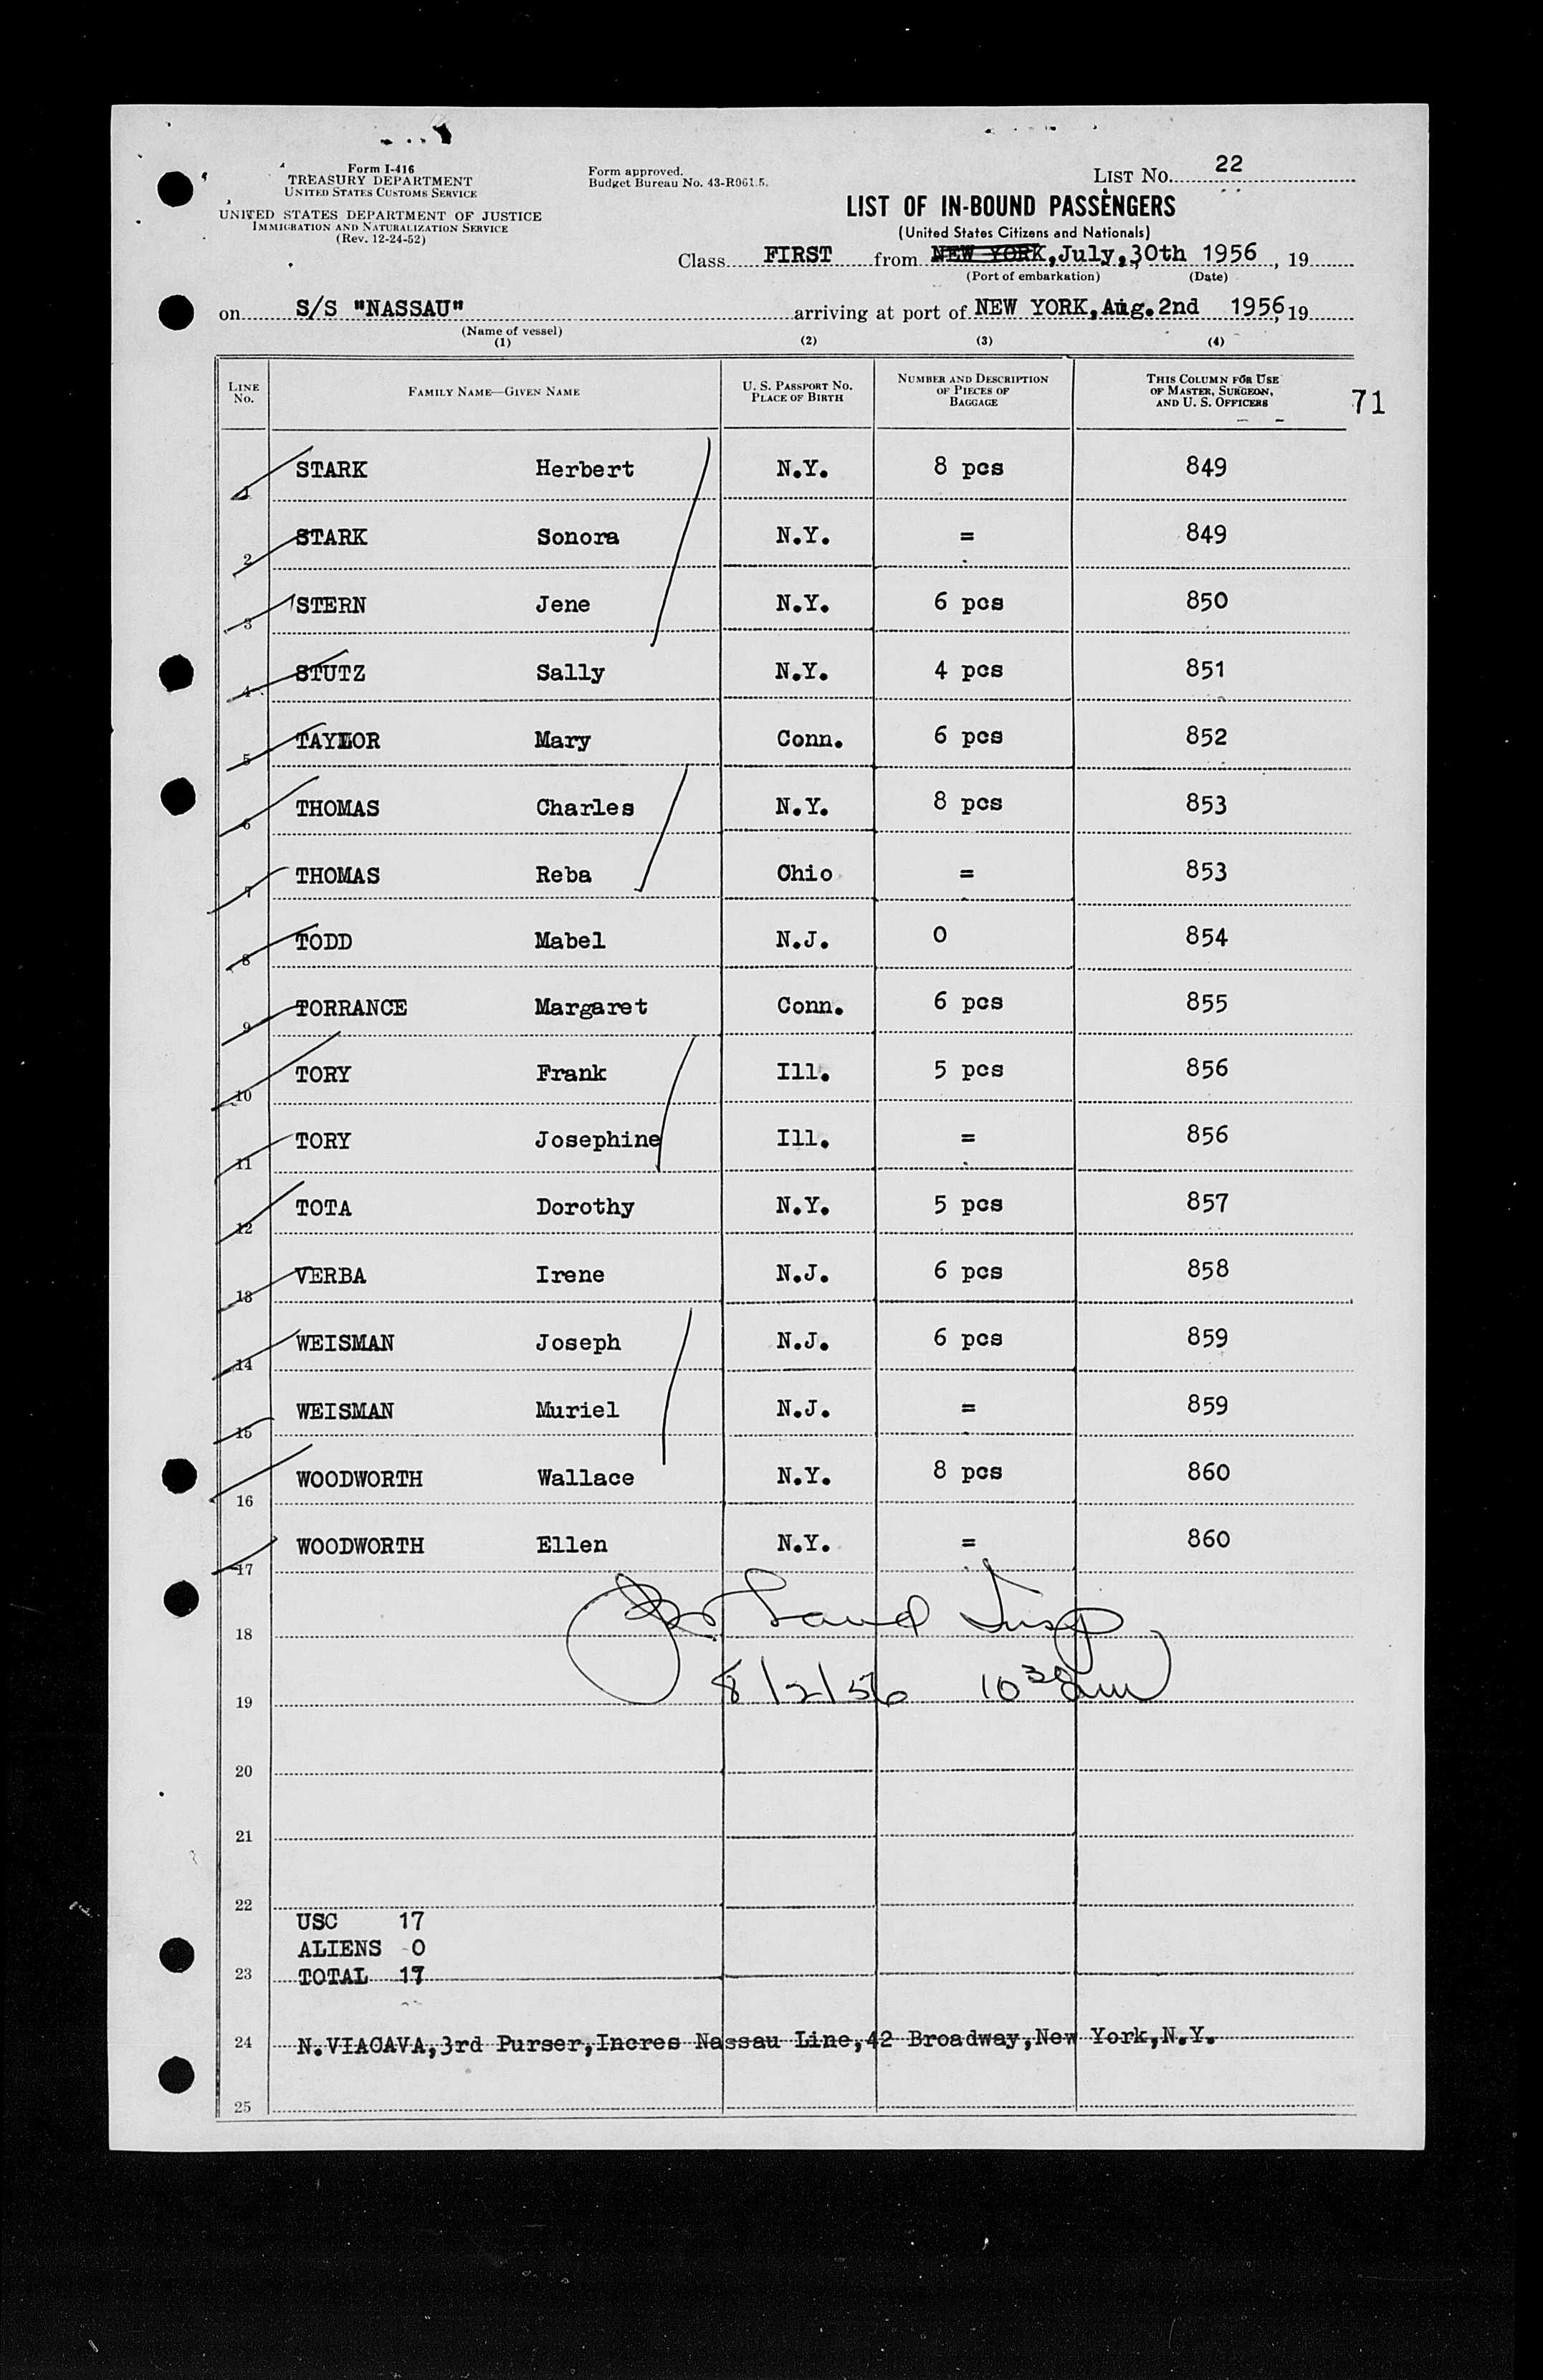 Form I-416
TREASURY DEPARTMENT
UNITED STATES CUSTOMS SERVICE
UNITED STATES DEPARTMENT OF JUSTICE
IMMIGRATION AND NATURALIZATION SERVICE
(Rev. 12-24-52)
Form approved.
Budget Bureau No. 43-R061.5.
LIST No. 22
LIST OF IN-BOUND PASSENGERS
(United States Citizens and Nationals)
Class FIRST from NEW YORK, July, 30th 1956, 19
(Port of embarkation) (Date)
on S/S "NASSAU" arriving at port of NEW YORK, Aug. 2nd 1956, 19
(Name of vessel)
(1) (2) (3) (4)
LINE No. FAMILY NAME—GIVEN NAME U. S. PASSPORT No. PLACE OF BIRTH NUMBER AND DESCRIPTION OF PIECES OF BAGGAGE THIS COLUMN FOR USE OF MASTER, SURGEON, AND U. S. OFFICERS 71
1 STARK Herbert N.Y. 8 pcs 849
2 STARK Sonora N.Y. = 849
3 STERN Jene N.Y. 6 pcs 850
4 STUTZ Sally N.Y. 4 pcs 851
5 TAYLOR Mary Conn. 6 pcs 852
6 THOMAS Charles N.Y. 8 pcs 853
7 THOMAS Reba Ohio = 853
8 TODD Mabel N.J. 0 854
9 TORRANCE Margaret Conn. 6 pcs 855
10 TORY Frank Ill. 5 pcs 856
11 TORY Josephine Ill. = 856
12 TOTA Dorothy N.Y. 5 pcs 857
13 VERBA Irene N.J. 6 pcs 858
14 WEISMAN Joseph N.J. 6 pcs 859
15 WEISMAN Muriel N.J. = 859
16 WOODWORTH Wallace N.Y. 8 pcs 860
17 WOODWORTH Ellen N.Y. = 860
18 Insp
19 8/2/56 10 30 am
20
21
22
USC 17
ALIENS 0
23 TOTAL 17
24 N.VIACAVA, 3rd Purser, Incres Nassau Line, 42 Broadway, New York, N.Y.
25